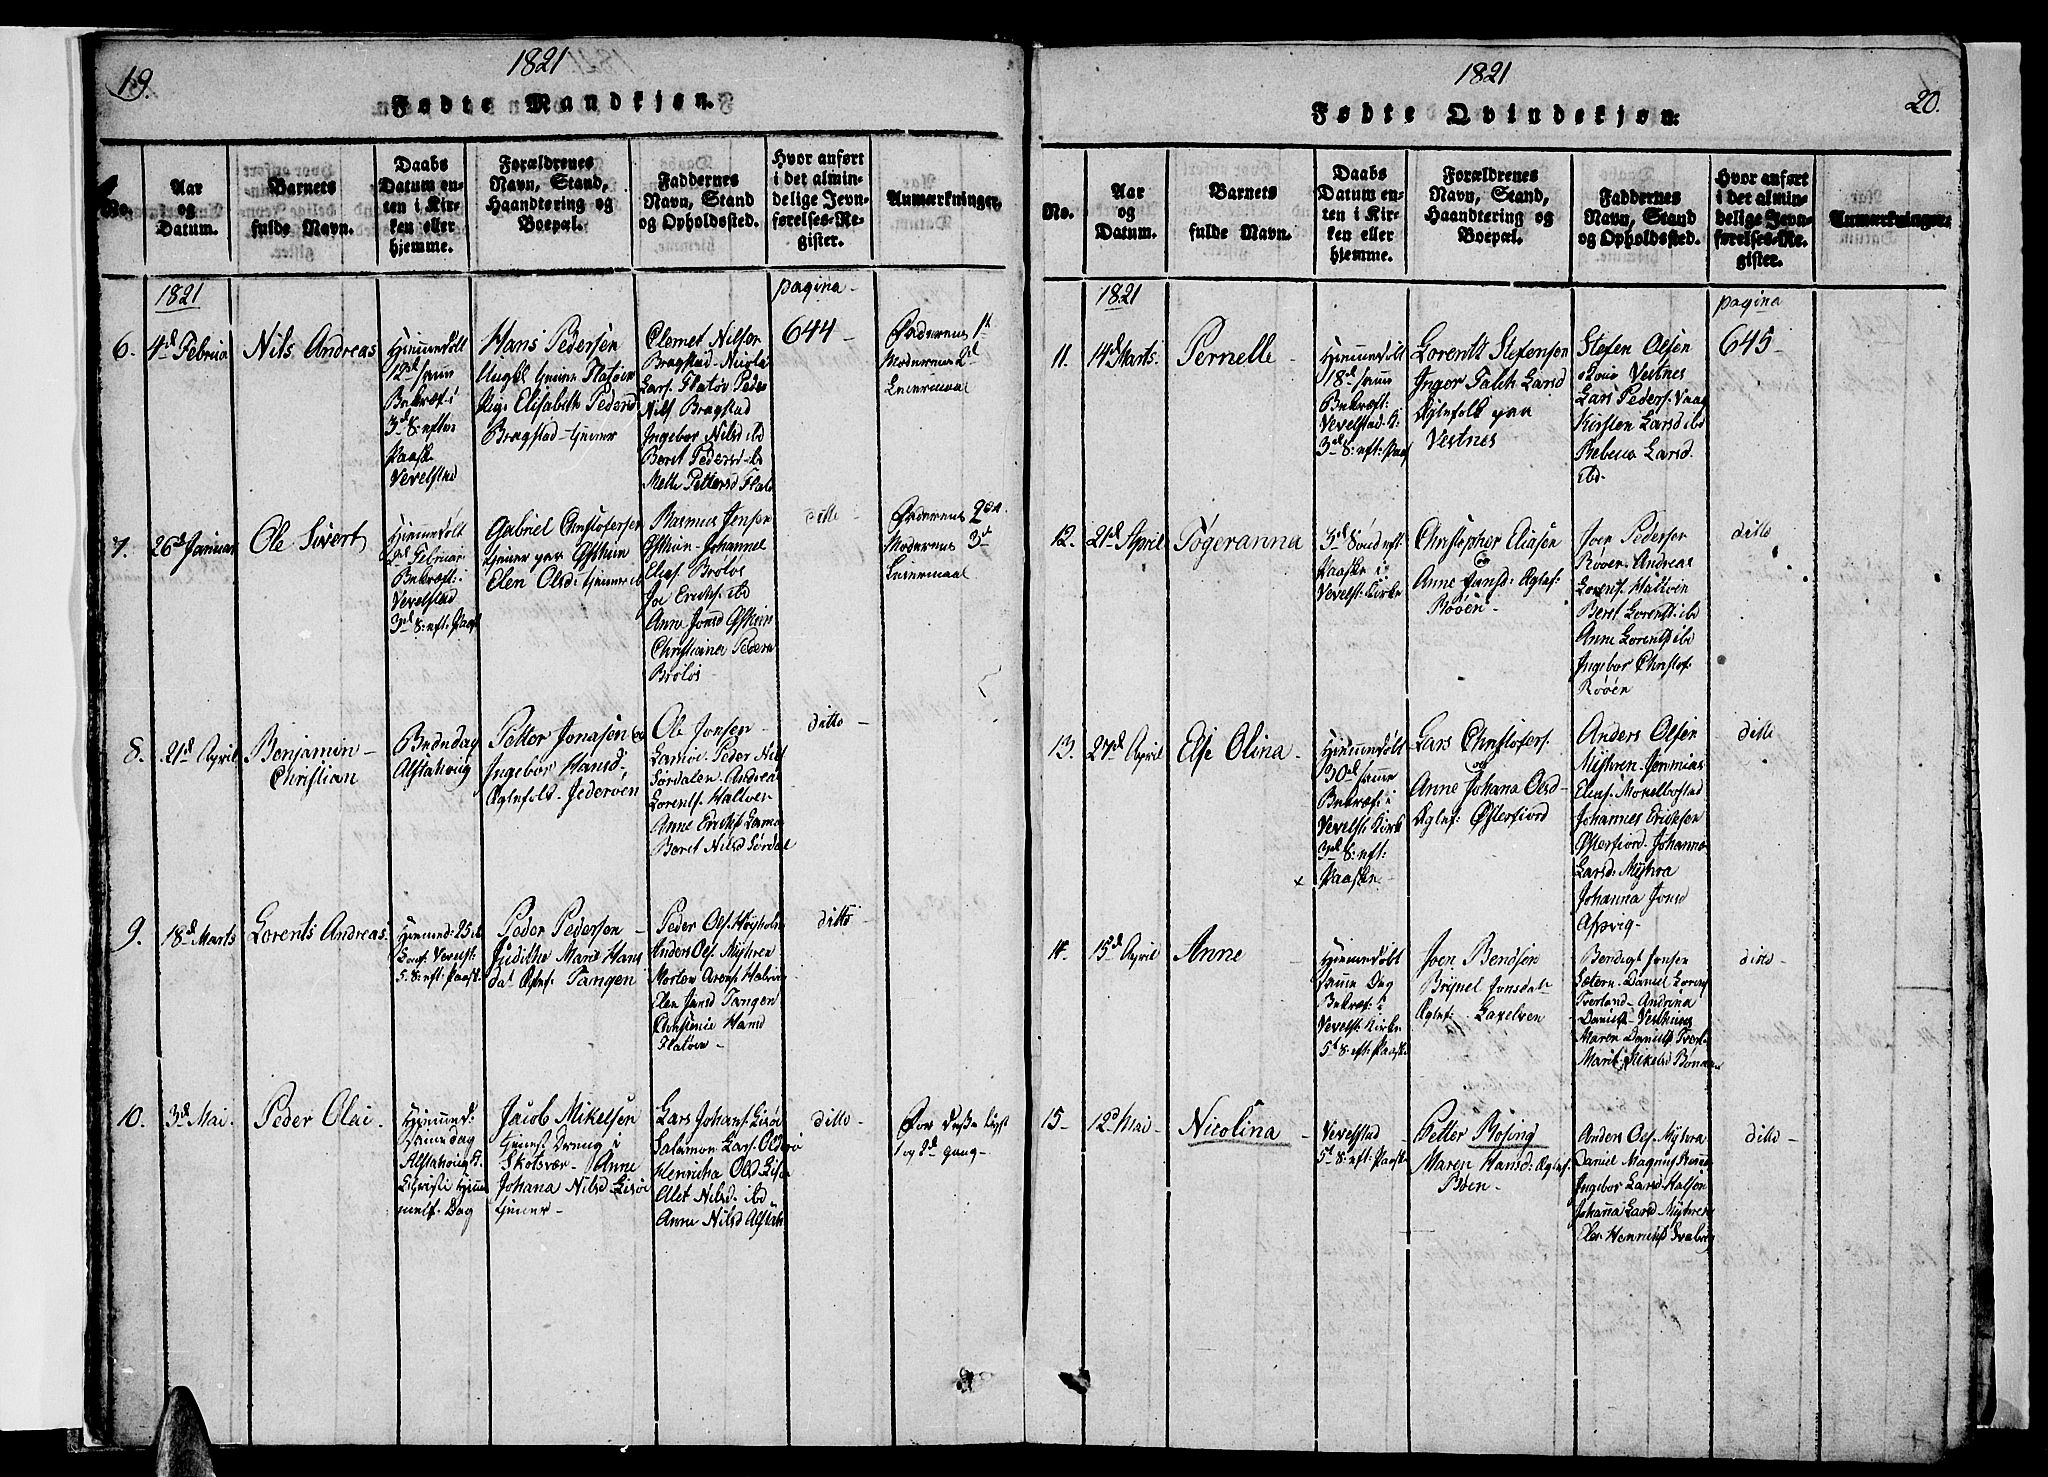 19.
1821
Fødte Mandkjøn.
No.
Aar
og
Datum.
Barnets
fulde Navn.
Daabs
Datum en-
ten i Kir-
ken eller
hjemme.
Forældrenes
Navn, Stand,
Haandtering og
Boepæl.
Faddernes
Navn, Stand
og Opholdssted.
Hvor anført
i det almin-
delige Jevn-
førelses-Re-
gister.
Anmærkninger.
1821
pagina
6.
4d Februar
Nils Andreas
Hiemmedøbt
12d samme
Bekræft: i
3d S: efter
Paaske
Vevelstad
Hans Pedersen
Ungkl tiener Flatøen
Pige Elisabeth Pedersd
Bragstad tiener
Clemet Nilsen
Bragstad - Nicolai
Lars: Flatøe Peder
Nils Bragstad
Ingebor Nilsd ibd
Beret Pedersd ibd
Mette Pettersd Flatø
644
Faderens 1te
Moderens 2d
Leiermaal
7.
26d Januar
Ole Sivert
Hiemmedøbt
2d Februar
Bekræft: i
Vevelstad
3d S: eft: Paas
Gabriel Christofersen
tiener paa
Elen Olsd: tiener ib
Rasmus Jensen
Johannes
Elias: Brøløs
Joe Eriks: ibd
Anne Jonsd
Christiana Peders
Brøløs
ditto
Faderens 2den
Moderens 3d
Leiermaal
8.
21d April
Benjamin
Christian
Alstahoug
Petter Jonasen og
Ingebor Hansd:
Ægtefolk
Ole Jonsen
Peder Nils
Sørdalen Andreas
Lorents:
Anne Ericks
Beret Nilsd Sørdal
ditto
9.
18d Marts
Lorents Andreas
Hiemmed: 25d
Conf: Vevelst:
5 S: eft: Paask
Peder Pedersen
Judithe Marie Hans
dat Ægtef: Tangen
Peder Ols:
Anders Ols: Myhren
Morten Arens:
Elen Jansd Tangen
Christenie Hansd
Flatøen
ditto
10.
3d Mai
Peder Olai
Hiemmed:
samme dag
Alstahoug K.
Christi Him
melf: Dag
Jacob Mikelsen
tienest Dreng i
Skotsvær - Anne
Johana Nilsd
tiener
Lars Johans:
Salamon Lars:
Henricha Olsd
Elet Nilsd: ibd
Anne Nilsd Alstah
ditto
For
1 og 2d Gang
1821
Fødte Qvindekjøn.
20.
No.
Aar
og
Datum.
Barnets
fulde Navn.
Daabs
Datum en-
ten i Kir-
ken eller
hjemme.
Forældrenes
Navn, Stand,
Haandtering og
Boepæl.
Faddernes
Navn, Stand
og Opholdssted.
Hvor anført
i det almin-
delige Jevn-
førelses-Re-
gister.
Anmærkninger.
1821
pagina
11.
14d Marts
Pernelle
Hiemmedøbt
18d samme
Bekræft:
Vevelstad K:
3d S: eft: Paas
Lorents Stefensen
Inger Falch Larsd
Ægtefolk paa
Vestnes
Stefen Olsen
Vestnes
Lars Peders: Vaag
Kirsten Larsd ibd
Rebecca Larsd.
ibd.
645
12.
21d April
Tøgeranna
3d Sønd eft
Paaske i
Vevelst: Kirke
Christopher Eliasen
og
Anne Jansd: Ægtef:
Røöen
Joen Pedersen
Røøen. Andreas
Lorents:
Beret Lorents: ibd
Anne Lorents ibd
Ingebor Christof:
Røöen
ditto
13.
27d April
Else Olina
Hiemmedøbt
30d samme
Bekræft: i
Vevelst: Kirk
3d S: eft:
Paaske
Lars Christofers:
og
Anne Johana Olsd
Ægtef: Østerfiord
Anders Olsen
Myhren - Jeremias
Elias: Mokelbostad
Johannes Ericksen
Østerfiord. Johanna
Larsd: Myhra
Johanna Jonsd
Aspvig
ditto
14.
15d April
Anne
Hiemmedøbt
samme Dag
Bekræf: i
Vevelst: Kirke
5t S: eft: Paask
Joen Bendsen
Brynel Jonsdat
Ægtef: Laxelven
Bendigt Jonsen
Sætern - Daniel Lorens
Tverland - Andrina
Daniels
Maren Daniels Tverl
Marit Mikelsd
ditto
15
12d Mai
Nicolina
Vevelstad
5t S: eft: Paask
Petter Bosing
Maren Hansd: Ægtef:
Boen
Anders Ols: Myhra
Daniel Magnus
Ingebor Larsd
Johana Larsd Myhren
ditto